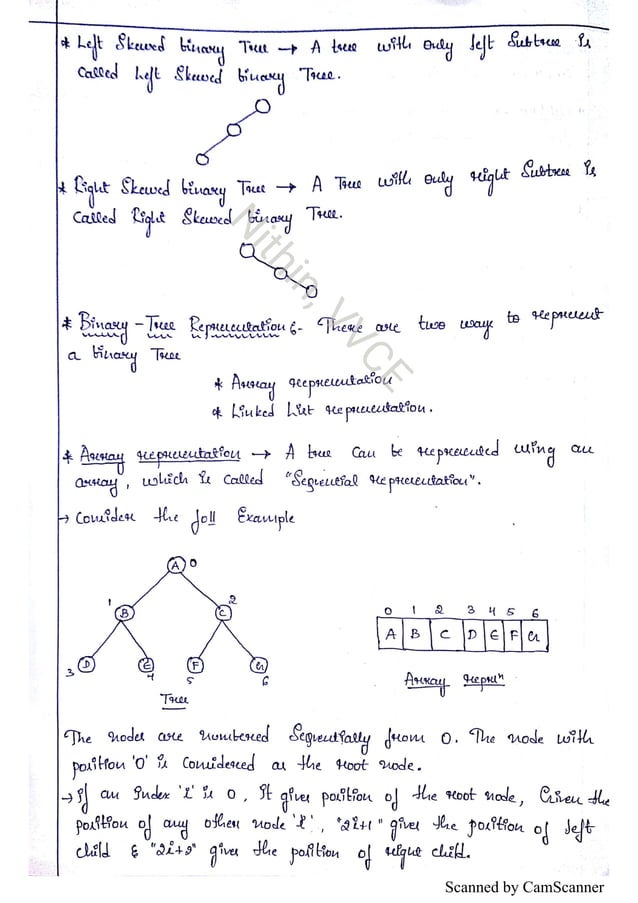 * Left Skewed binary Tree → A tree with only left Subtree is
called Left Skewed binary Tree.
* Right Skewed binary Tree → A Tree with only right Subtree is
called Right Skewed binary Tree.
* Binary - Tree Representation :- There are two way to represent
a binary Tree
* Array representation
* Linked List representation.
* Array representation → A tree can be represented using an
array, which is called "Sequential representation".
→ Consider the foll Example
A 0
1 B
2 C
3 D
E 4
F 5
G 6
Tree
0 1 2 3 4 5 6
A B C D E F G
Array reprⁿ
The nodes are numbered Sequentially from 0. The node with
position '0' is considered as the root node.
→ If an index 'i' is 0, It gives position of the root node, Given the
position of any other node 'i', "2i+1" gives the position of left
child & "2i+2" gives the position of right child.
Nithin, VVCE
Scanned by CamScanner